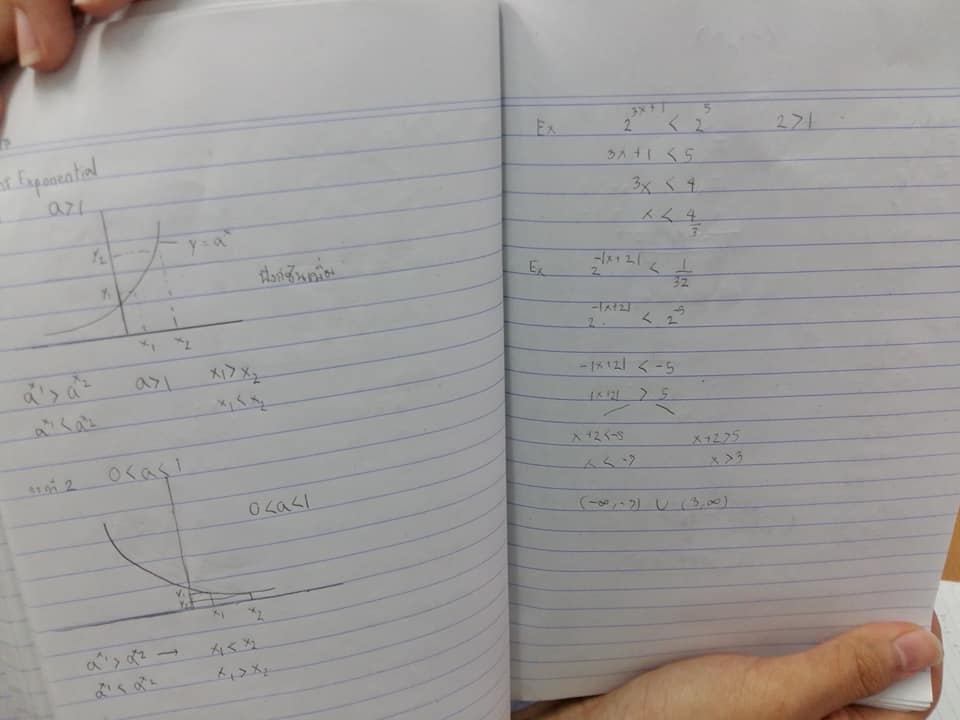 Exponential
a>1
y = aˣ
y₂
y₁
x₁ x₂
ฟังก์ชันเพิ่ม
aˣ¹ > aˣ² a>1 x₁ > x₂
aˣ¹ < aˣ² x₁ < x₂
กรณี 2 0<a<1
0<a<1
x₁ x₂
aˣ¹ > aˣ² → x₁ < x₂
aˣ¹ < aˣ² x₁ > x₂
Ex 2^(3x+1) < 2^5 2>1
3x+1 < 5
3x < 4
x < 4/3
Ex 2^(-|x+2|) < 1/32
2^(-|x+2|) < 2^(-5)
-|x+2| < -5
|x+2| > 5
x+2<-5 x+2>5
x < -7 x > 3
(-∞,-7) ∪ (3,∞)